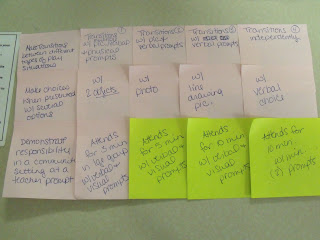 between different
types of play
situations
Transitions
w/
+ physical
prompts
Transitions
w/
verbal prompts
Transitions
w/
verbal prompts
Transitions
independently
Make choices
when presented
w/ several
options
w/
2 objects
w/
photo
w/
line
drawing
pic.
w/
verbal
choice
Demonstrate
responsibility
in a community
setting at a
teacher prompt
Attends
for 3 min
w/ group
w/ verbal +
visual
prompts
Attends
for 5 min
w/ verbal +
visual
prompts
Attends
for 10 min
w/ verbal +
visual
prompts
Attends for
10 min
w/ min
(2) prompts